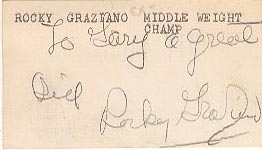 ROCKY GRAZIANO MIDDLE WEIGHT
Ex-
CHAMP
To Gary a great
Kid
Rocky Graziano